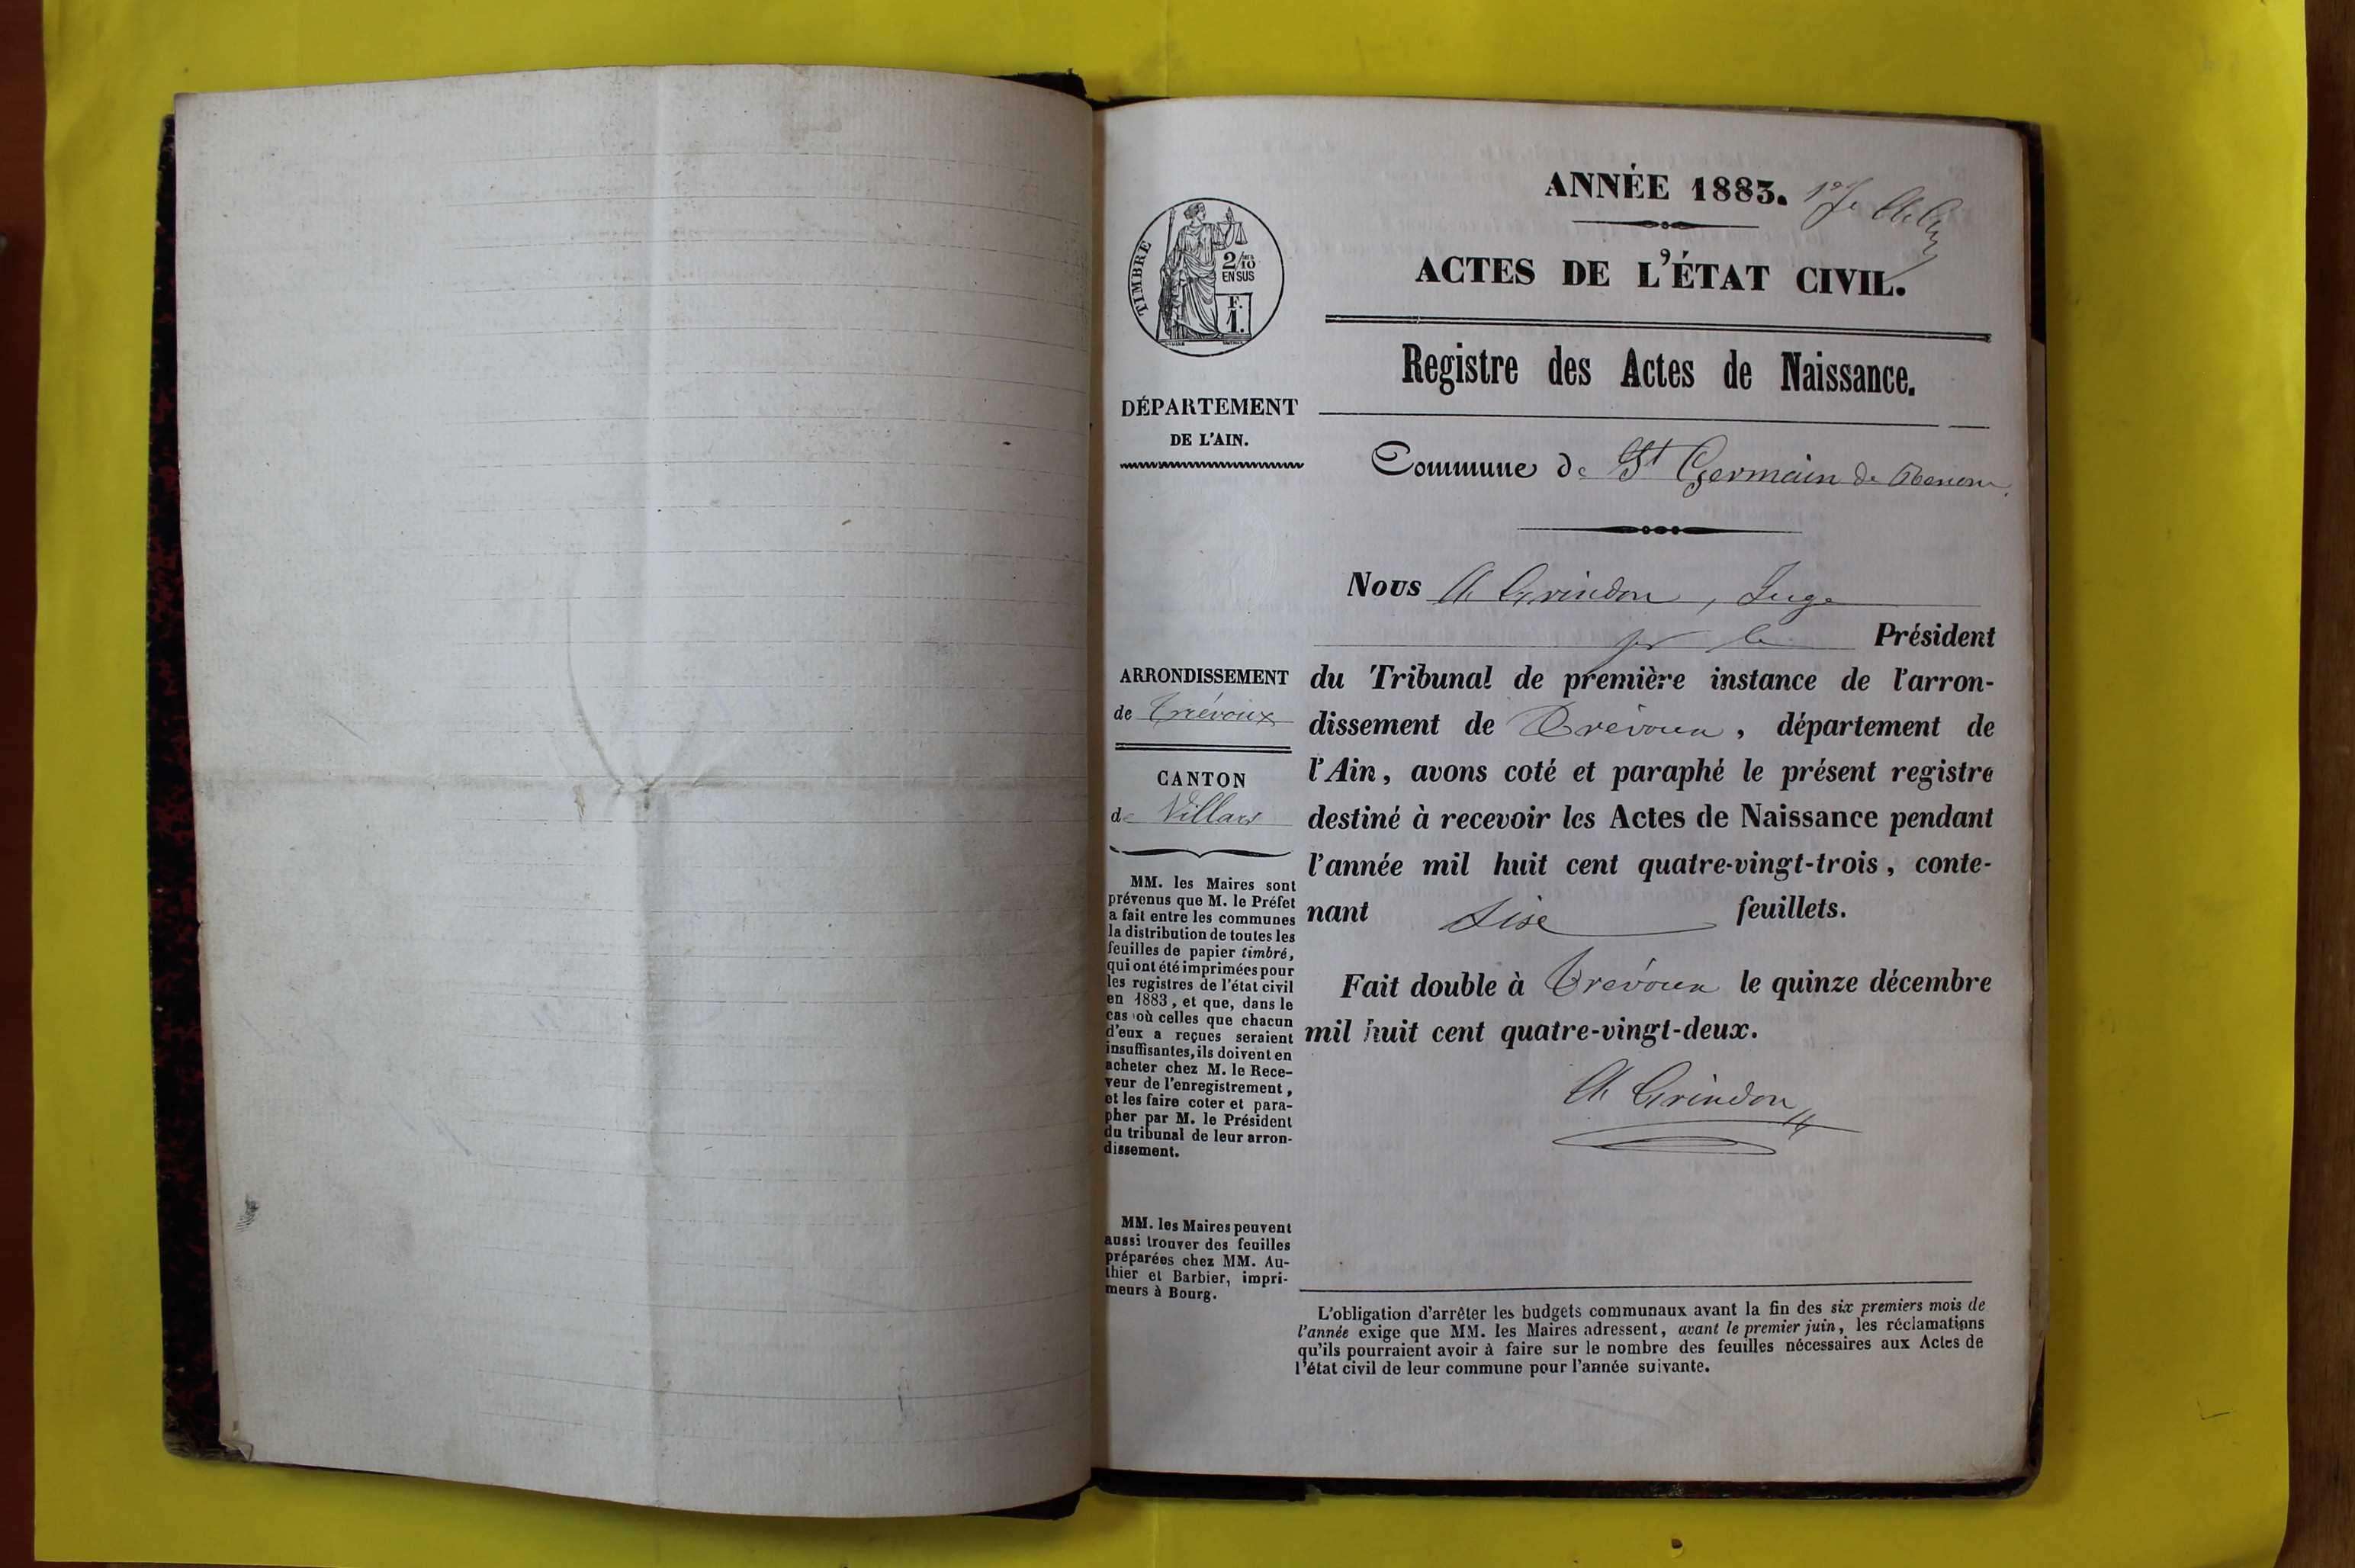 ANNÉE 1883.
ACTES DE L'ÉTAT CIVIL.
TIMBRE
2/10 EN SUS
F. 1.
Registre des Actes de Naissance.
DÉPARTEMENT
DE L'AIN.
Commune de St Germain de Renom
Nous Ch Grindon, Juge
pr le Président
ARRONDISSEMENT
de Trévoux
CANTON
de Villars
du Tribunal de première instance de l'arron-
dissement de Trévoux, département de
l'Ain, avons coté et paraphé le présent registre
destiné à recevoir les Actes de Naissance pendant
l'année mil huit cent quatre-vingt-trois, conte-
nant Six feuillets.
Fait double à Trévoux le quinze décembre
mil huit cent quatre-vingt-deux.
Ch Grindon
MM. les Maires sont
prévenus que M. le Préfet
a fait entre les communes
la distribution de toutes les
feuilles de papier timbré,
qui ont été imprimées pour
les registres de l'état civil
en 1883, et que, dans le
cas où celles que chacun
d'eux a reçues seraient
insuffisantes, ils doivent en
acheter chez M. le Rece-
veur de l'enregistrement,
et les faire coter et para-
pher par M. le Président
du tribunal de leur arron-
dissement.
MM. les Maires peuvent
aussi trouver des feuilles
préparées chez MM. Au-
thier et Barbier, impri-
meurs à Bourg.
L'obligation d'arrêter les budgets communaux avant la fin des six premiers mois de
l'année exige que MM. les Maires adressent, avant le premier juin, les réclamations
qu'ils pourraient avoir à faire sur le nombre des feuilles nécessaires aux Actes de
l'état civil de leur commune pour l'année suivante.